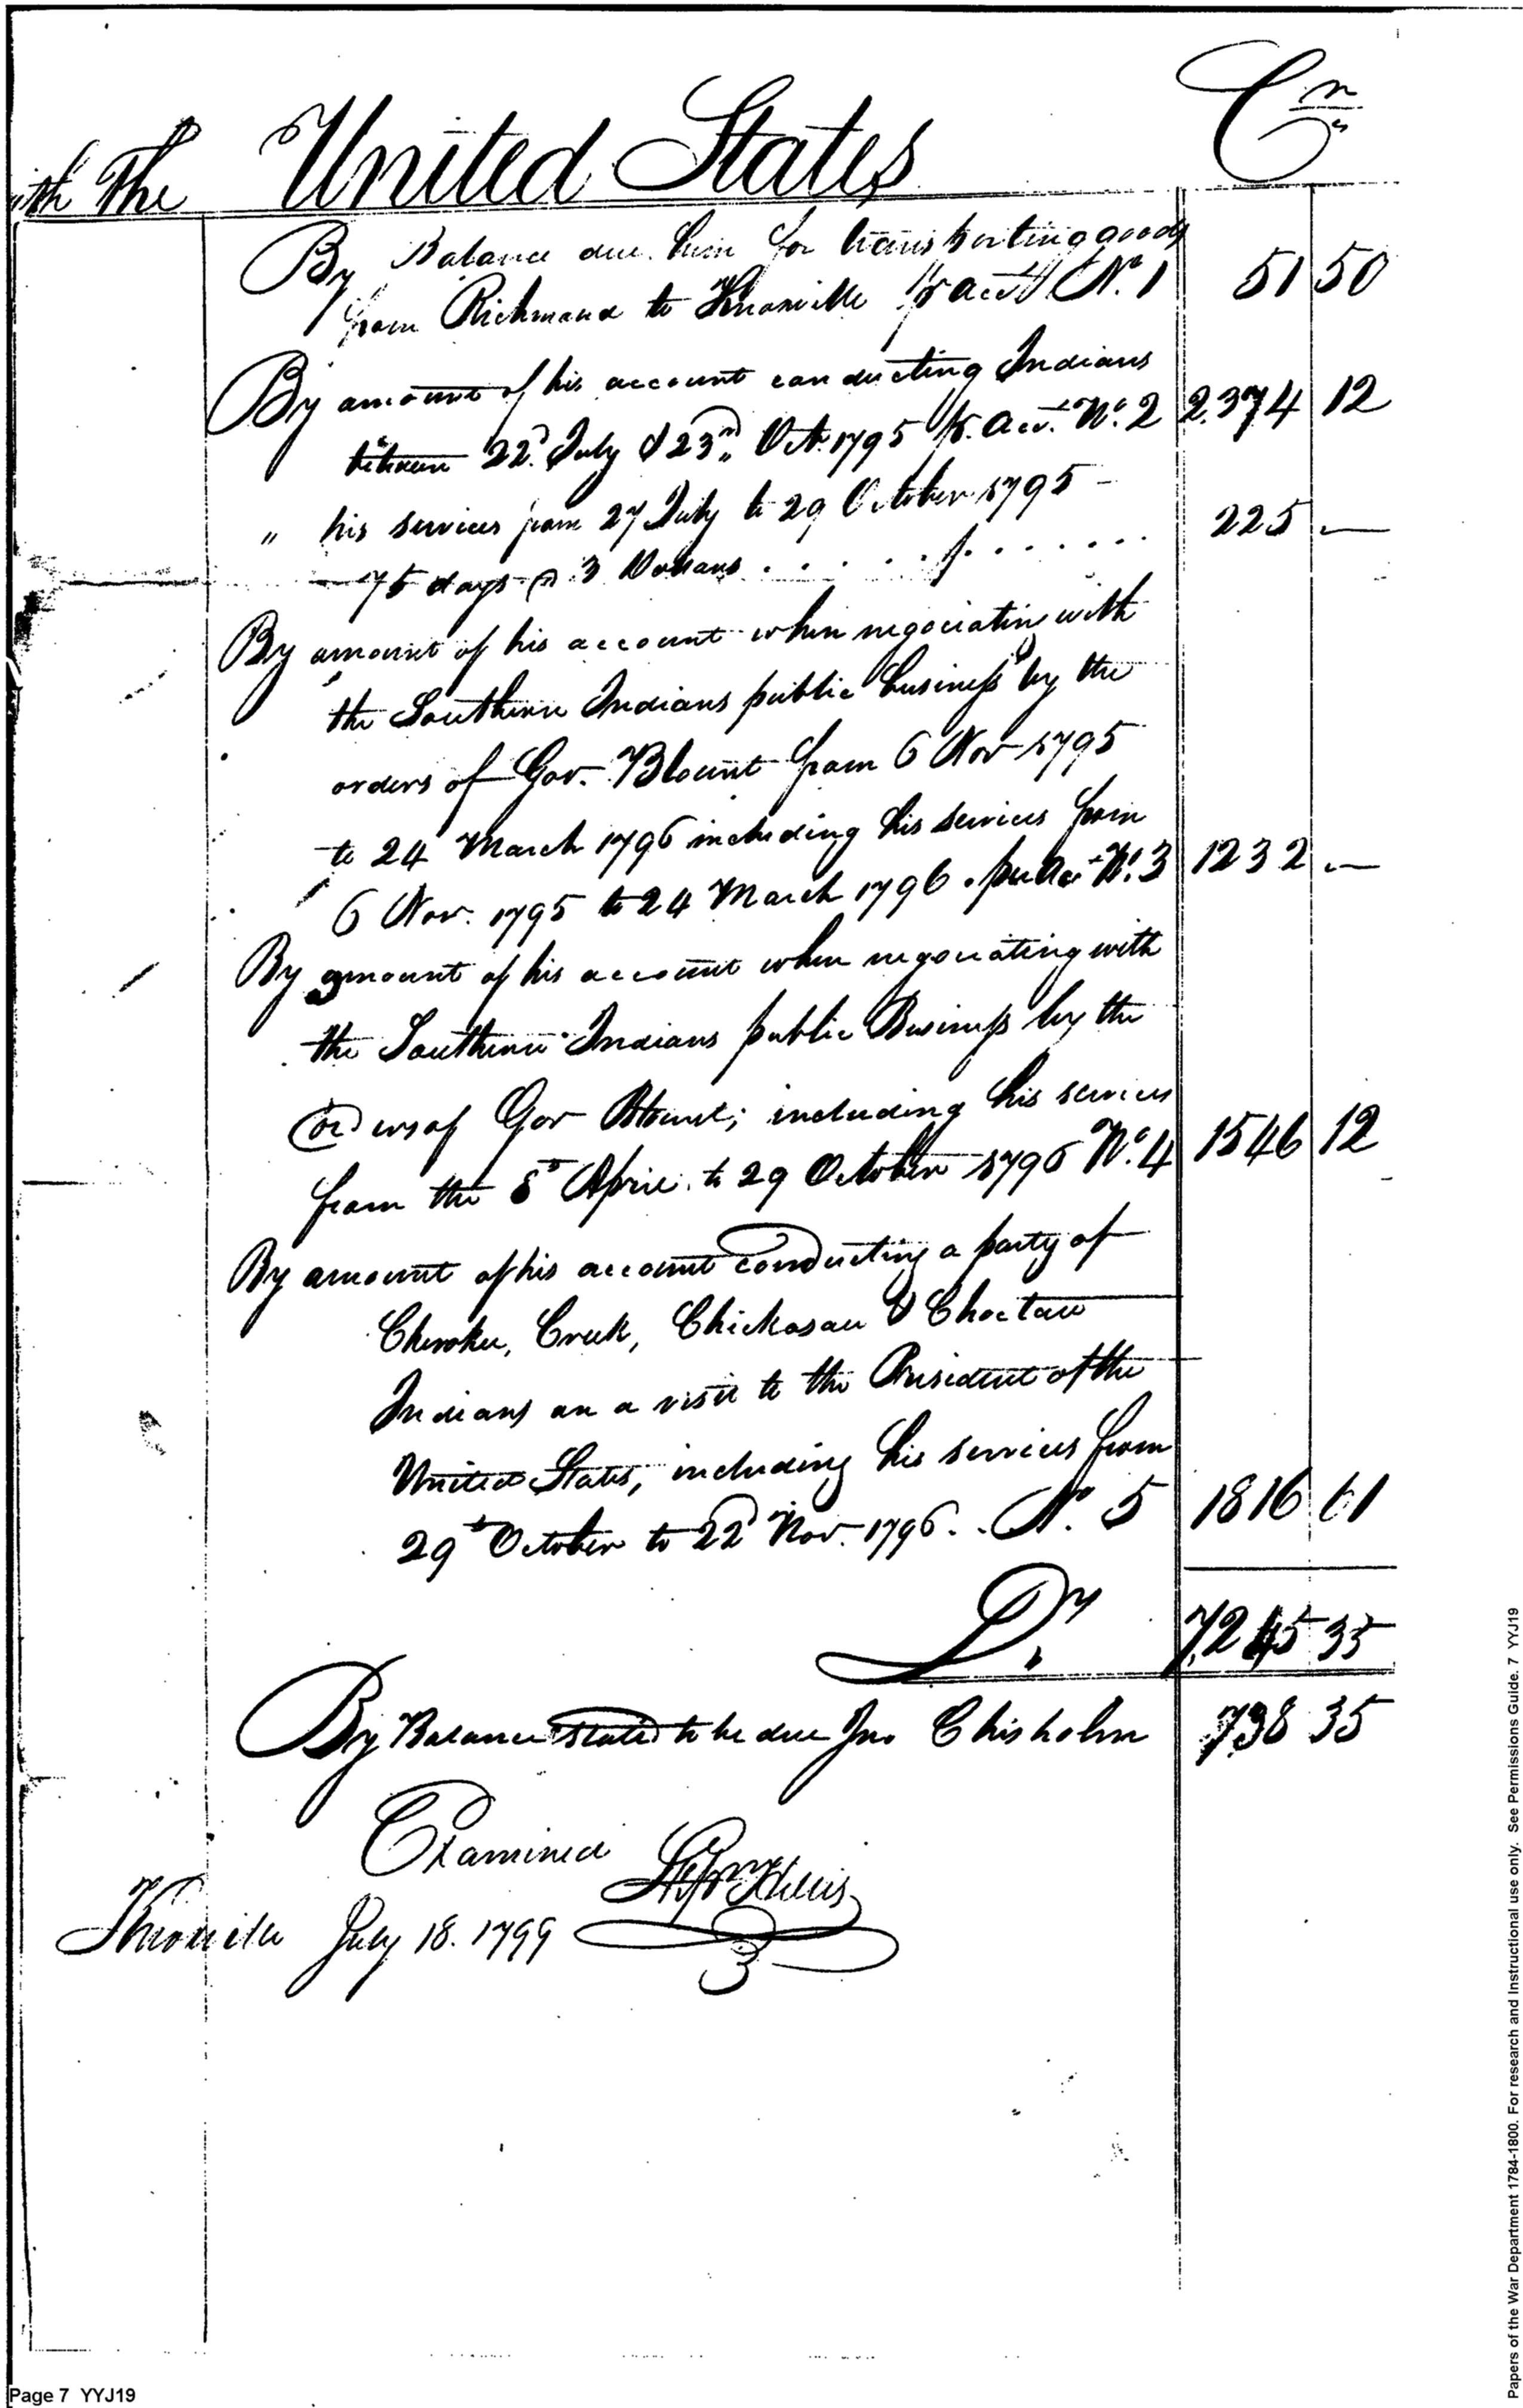 ith The United States Cr
By Balance due him for transporting goods
from Richmond to Knoxville pr acct No. 1 51 50
By amount of his account conducting Indians
between 22d July & 23rd Oct. 1795 pr. acct. No. 2 2.374 12
" his services from 27 July to 29 October 1795 -
75 days @ 3 Dollars . . . . . . . . . . . . 225 —
By amount of his account when negociating with
the Southern Indians public business by the
orders of Gov. Blount from 6 Nov 1795
to 24 March 1796 including his services from
6 Nov. 1795 to 24 March 1796 . per No. 3 1232 —
By amount of his account when negociating with
the Southern Indians public Business by the
orders of Gov Blount; including his services
from the 8th April to 29 October 1796 No. 4 1546 12
By amount of his account conducting a party of
Cherokee, Creek, Chickasaw & Choctaw
Indians on a visit to the President of the
United States, including his services from
29th October to 22d Nov. 1796 . . No. 5 1816 61
Dr 7,245 35
By Balance stated to be due Jno Chisholm 738 35
Examined
Knoxville July 18. 1799
Page 7 YYJ19
Papers of the War Department 1784-1800. For research and Instructional use only. See Permissions Guide. 7 YYJ19